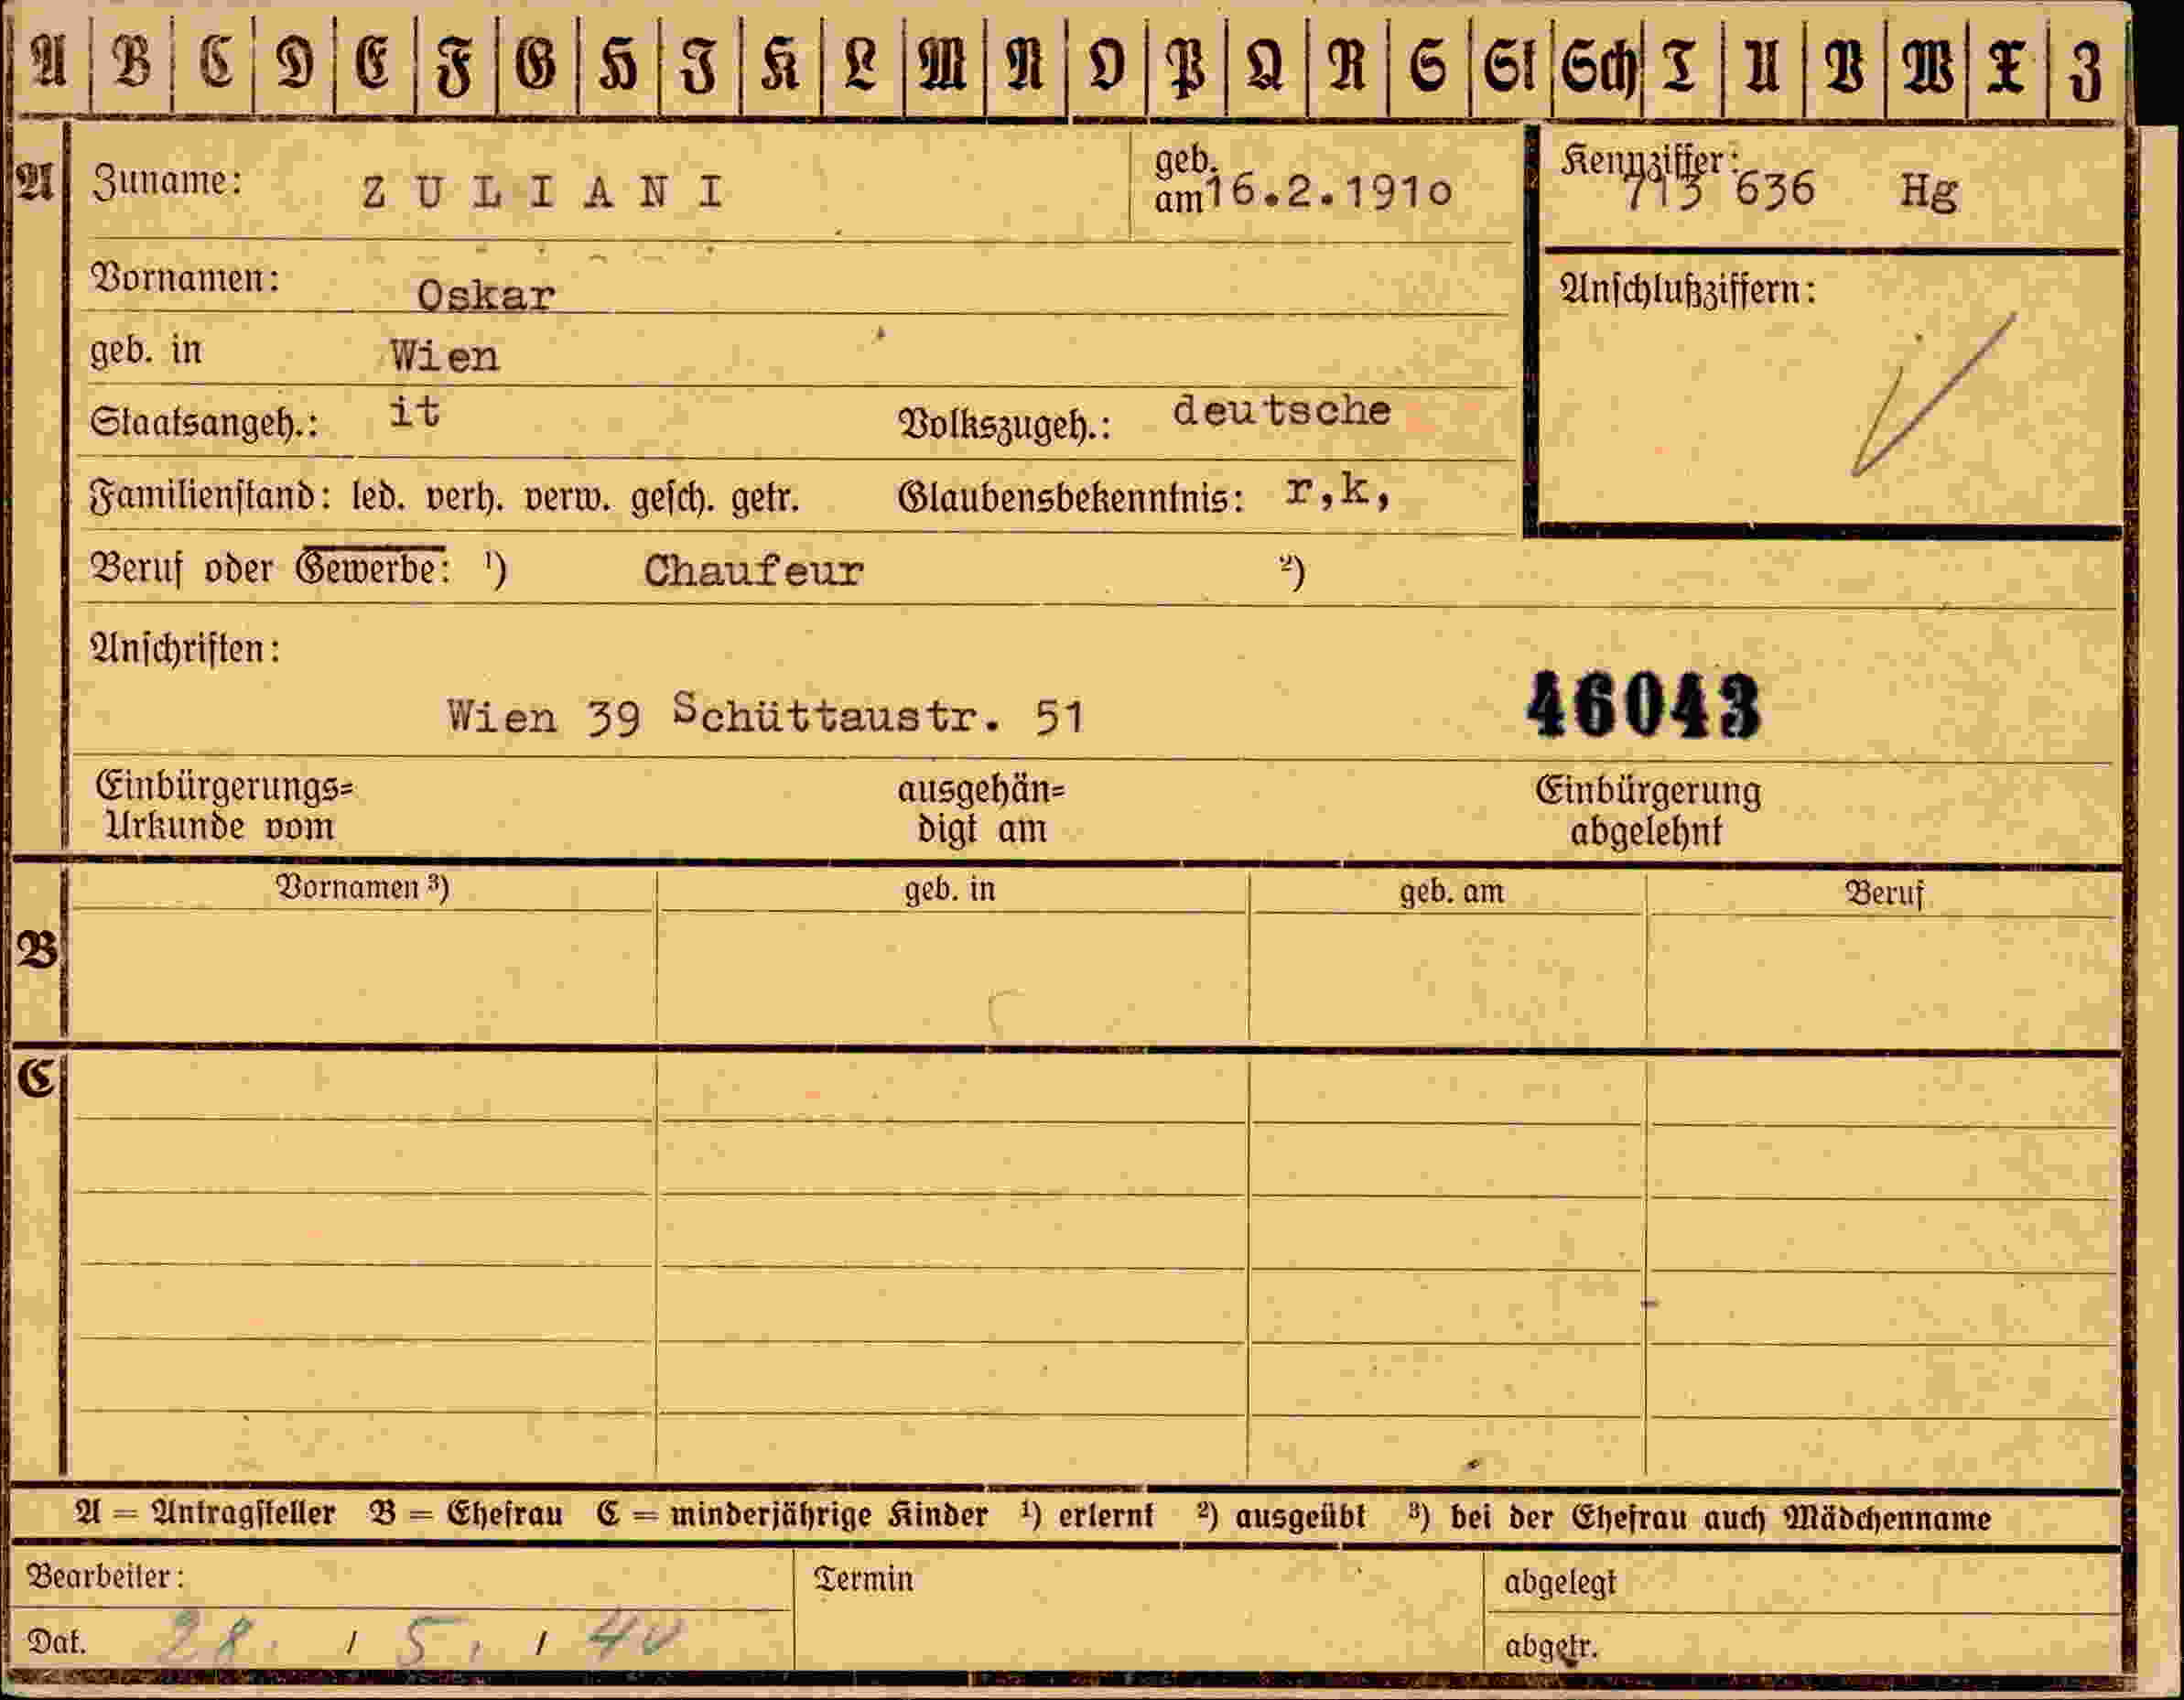 A B C D E F G H J K L M N O P Q R S St Sch T U V W X Z
A Zuname: ZULIANI geb. am 16.2.1910 Kennziffer: 713 636 Hg
Vornamen: Oskar Anschlußziffern:
geb. in Wien
Staatsangeh.: it Volkszugeh.: deutsche
Familienstand: led. verh. verw. gesch. getr. Glaubensbekenntnis: r,k,
Beruf oder Gewerbe: ¹) Chaufeur ²)
Anschriften:
Wien 39 Schüttaustr. 51 46043
Einbürgerungs= ausgehän= Einbürgerung
Urkunde vom digt am abgelehnt
Vornamen ³) geb. in geb. am Beruf
B
C
A = Antragsteller B = Ehefrau C = minderjährige Kinder ¹) erlernt ²) ausgeübt ³) bei der Ehefrau auch Mädchenname
Bearbeiter: Termin abgelegt
Dat. 28. / 5. / 40 abgetr.